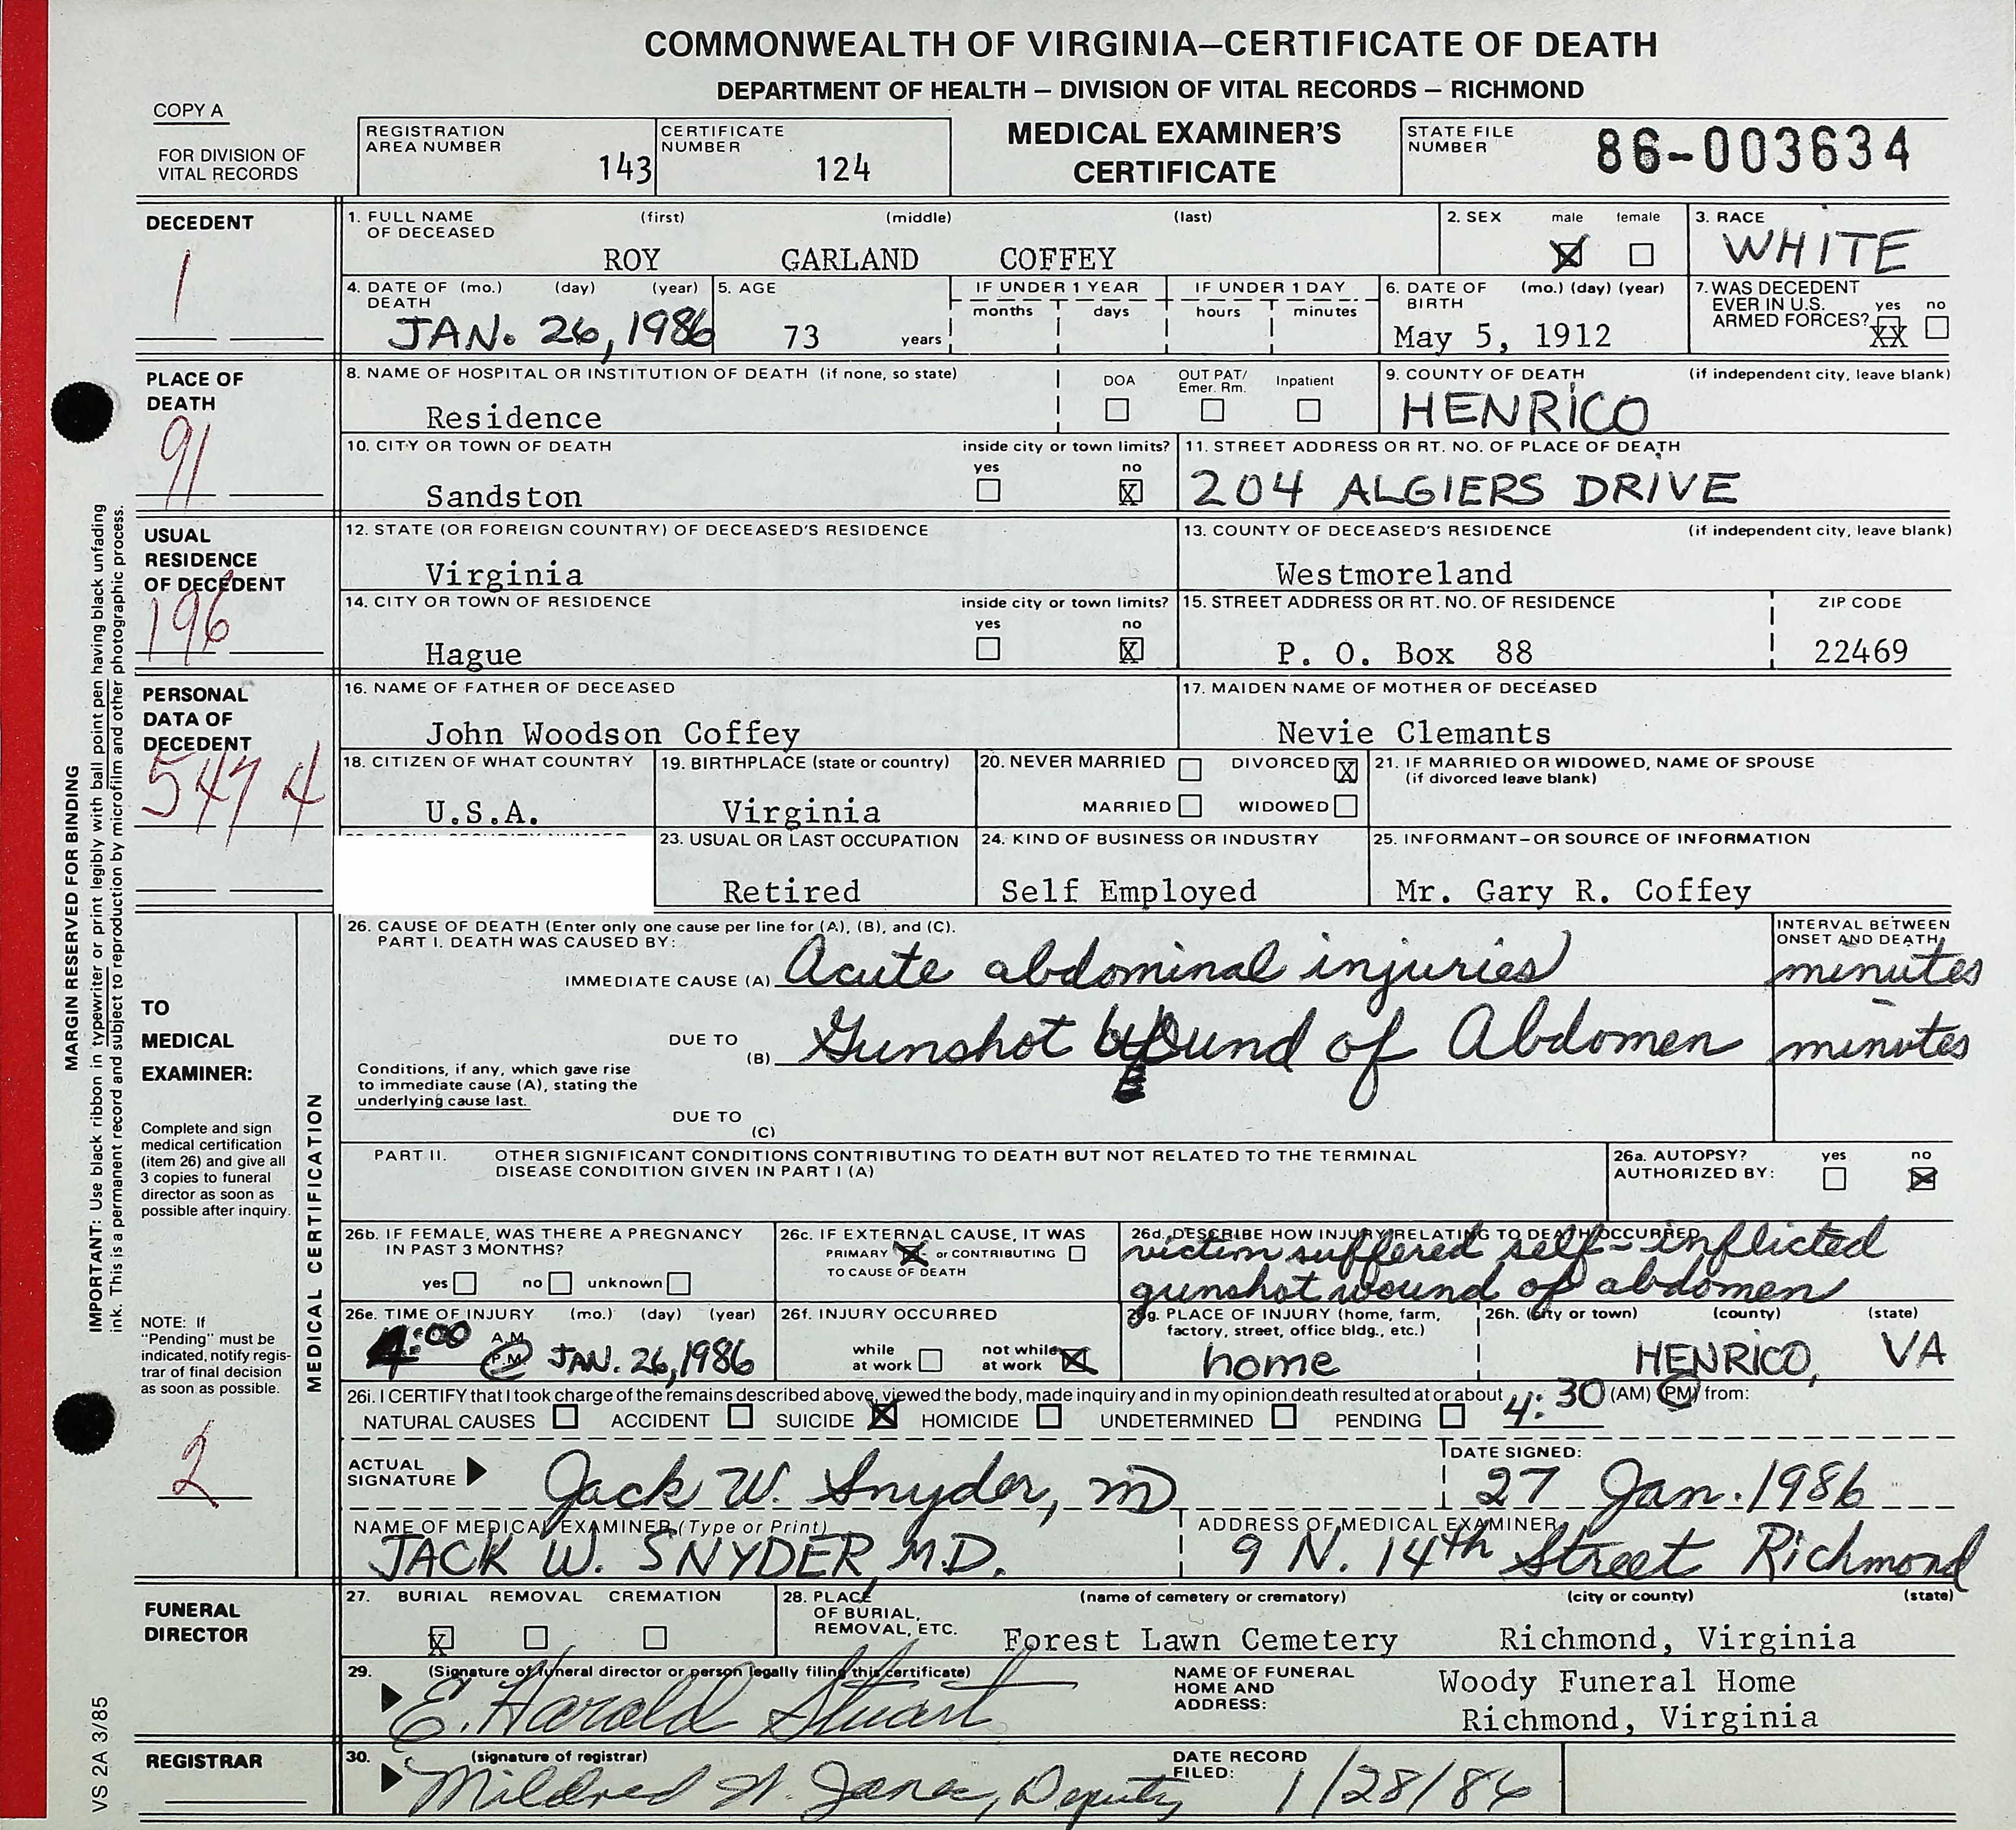 COMMONWEALTH OF VIRGINIA—CERTIFICATE OF DEATH
DEPARTMENT OF HEALTH — DIVISION OF VITAL RECORDS — RICHMOND
COPY A
FOR DIVISION OF
VITAL RECORDS
REGISTRATION
AREA NUMBER
143
CERTIFICATE
NUMBER
124
MEDICAL EXAMINER'S
CERTIFICATE
STATE FILE
NUMBER
86-003634
DECEDENT
1
1. FULL NAME (first) (middle) (last)
OF DECEASED
ROY GARLAND COFFEY
2. SEX male female
3. RACE
WHITE
4. DATE OF (mo.) (day) (year)
DEATH
JAN. 26, 1986
5. AGE
73 years
IF UNDER 1 YEAR
months days
IF UNDER 1 DAY
hours minutes
6. DATE OF (mo.) (day) (year)
BIRTH
May 5, 1912
7. WAS DECEDENT
EVER IN U.S. yes no
ARMED FORCES? XX
PLACE OF
DEATH
91
8. NAME OF HOSPITAL OR INSTITUTION OF DEATH (if none, so state)
Residence
DOA OUT PAT/ Inpatient
Emer. Rm.
9. COUNTY OF DEATH (if independent city, leave blank)
HENRICO
10. CITY OR TOWN OF DEATH inside city or town limits?
yes no
Sandston X
11. STREET ADDRESS OR RT. NO. OF PLACE OF DEATH
204 ALGIERS DRIVE
USUAL
RESIDENCE
OF DECEDENT
196
12. STATE (OR FOREIGN COUNTRY) OF DECEASED'S RESIDENCE
Virginia
13. COUNTY OF DECEASED'S RESIDENCE (if independent city, leave blank)
Westmoreland
14. CITY OR TOWN OF RESIDENCE inside city or town limits?
yes no
Hague X
15. STREET ADDRESS OR RT. NO. OF RESIDENCE ZIP CODE
P. O. Box 88 22469
PERSONAL
DATA OF
DECEDENT
5474
16. NAME OF FATHER OF DECEASED
John Woodson Coffey
17. MAIDEN NAME OF MOTHER OF DECEASED
Nevie Clemants
18. CITIZEN OF WHAT COUNTRY
U.S.A.
19. BIRTHPLACE (state or country)
Virginia
20. NEVER MARRIED DIVORCED X
MARRIED WIDOWED
21. IF MARRIED OR WIDOWED, NAME OF SPOUSE
(if divorced leave blank)
23. USUAL OR LAST OCCUPATION
Retired
24. KIND OF BUSINESS OR INDUSTRY
Self Employed
25. INFORMANT—OR SOURCE OF INFORMATION
Mr. Gary R. Coffey
MARGIN RESERVED FOR BINDING
IMPORTANT: Use black ribbon in typewriter or print legibly with ball point pen having black unfading
ink. This is a permanent record and subject to reproduction by microfilm and other photographic process.
TO
MEDICAL
EXAMINER:
Complete and sign
medical certification
(item 26) and give all
3 copies to funeral
director as soon as
possible after inquiry.
NOTE: If
"Pending" must be
indicated, notify regis-
trar of final decision
as soon as possible.
2
MEDICAL CERTIFICATION
26. CAUSE OF DEATH (Enter only one cause per line for (A), (B), and (C).
PART I. DEATH WAS CAUSED BY:
INTERVAL BETWEEN
ONSET AND DEATH
IMMEDIATE CAUSE (A) Acute abdominal injuries minutes
DUE TO
(B) Gunshot Wound of Abdomen minutes
Conditions, if any, which gave rise
to immediate cause (A), stating the
underlying cause last.
DUE TO
(C)
PART II. OTHER SIGNIFICANT CONDITIONS CONTRIBUTING TO DEATH BUT NOT RELATED TO THE TERMINAL
DISEASE CONDITION GIVEN IN PART I (A)
26a. AUTOPSY? yes no
AUTHORIZED BY:
26b. IF FEMALE, WAS THERE A PREGNANCY
IN PAST 3 MONTHS?
yes no unknown
26c. IF EXTERNAL CAUSE, IT WAS
PRIMARY or CONTRIBUTING
TO CAUSE OF DEATH
26d. DESCRIBE HOW INJURY RELATING TO DEATH OCCURRED
victim suffered self-inflicted
gunshot wound of abdomen
26e. TIME OF INJURY (mo.) (day) (year)
4:00 A.M. P.M. JAN. 26, 1986
26f. INJURY OCCURRED
while not while
at work at work
26g. PLACE OF INJURY (home, farm,
factory, street, office bldg., etc.)
home
26h. (City or town) (county) (state)
HENRICO, VA
26i. I CERTIFY that I took charge of the remains described above, viewed the body, made inquiry and in my opinion death resulted at or about 4:30 (AM) (PM) from:
NATURAL CAUSES ACCIDENT SUICIDE HOMICIDE UNDETERMINED PENDING
ACTUAL
SIGNATURE Jack W. Snyder, MD
DATE SIGNED:
27 Jan. 1986
NAME OF MEDICAL EXAMINER (Type or Print)
JACK W. SNYDER, M.D.
ADDRESS OF MEDICAL EXAMINER
9 N. 14th Street Richmond
FUNERAL
DIRECTOR
27. BURIAL REMOVAL CREMATION
X
28. PLACE (name of cemetery or crematory) (city or county) (state)
OF BURIAL,
REMOVAL, ETC.
Forest Lawn Cemetery Richmond, Virginia
29. (Signature of funeral director or person legally filing this certificate)
E. Harold Stuart
NAME OF FUNERAL
HOME AND
ADDRESS:
Woody Funeral Home
Richmond, Virginia
REGISTRAR
30. (signature of registrar)
Mildred H. Jones, Deputy
DATE RECORD
FILED: 1/28/86
VS 2A 3/85